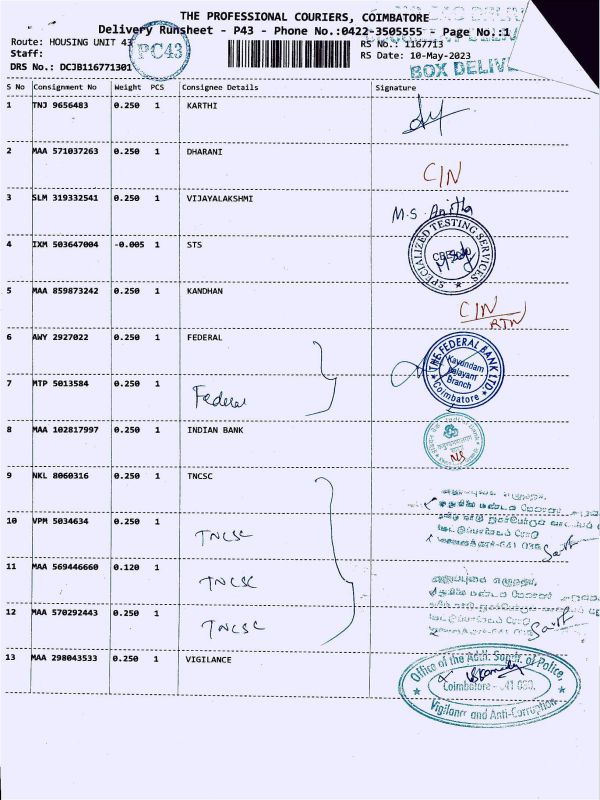 THE PROFESSIONAL COURIERS, COIMBATORE
Delivery Runsheet - P43 - Phone No.:0422-3505555 - Page No.:1
Route: HOUSING UNIT 43
PC43
RS No.: 1167713
Staff:
RS Date: 10-May-2023
DRS No.: DCJB116771301
BOX DELIV
S No Consignment No Weight PCS Consignee Details Signature
1 TNJ 9656483 0.250 1 KARTHI
2 MAA 571037263 0.250 1 DHARANI
C/N
3 SLM 319332541 0.250 1 VIJAYALAKSHMI
M.S. Anitha
4 IXM 503647004 -0.005 1 STS
SPECIALIZED TESTING SERVICES
5 MAA 859873242 0.250 1 KANDHAN
C/N
RTN
6 AWY 2927022 0.250 1 FEDERAL
THE FEDERAL BANK LTD
Kavundam
Palayam
Branch
Coimbatore
7 MTP 5013584 0.250 1 Federal
8 MAA 102817997 0.250 1 INDIAN BANK
9 NKL 8060316 0.250 1 TNCSC
10 VPM 5034634 0.250 1 TNCSC
11 MAA 569446660 0.120 1 TNCSC
12 MAA 570292443 0.250 1 TNCSC
13 MAA 298043533 0.250 1 VIGILANCE
Office of the Addl. Supdt. of Police,
Vigilance and Anti-Corruption